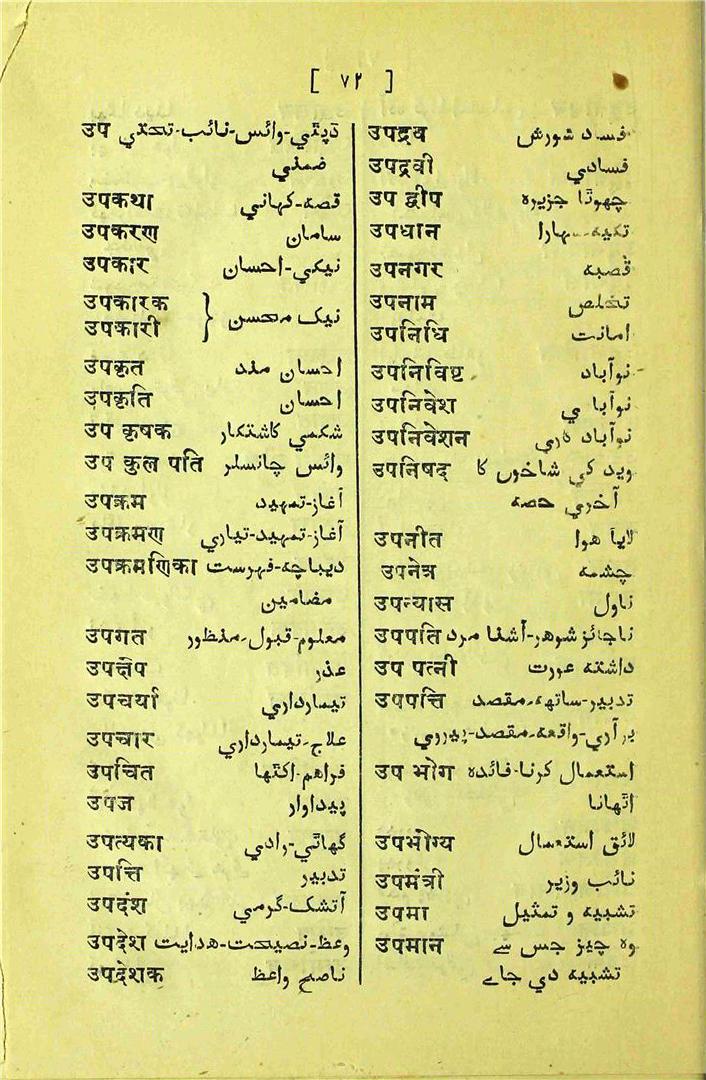 [ ۷۲ ]
उप ڈپٹي-وائس-نائب-تحتي
ضمني
उपकथा قصہ-کہاني
उपकरण سامان
उपकार نیکي-احسان
उपकारक
उपकारी } نیک محسن
उपकृत احسان مند
उपकृति احسان
उप कृषक شکمي کاشتکار
उप कुल पति وائس چانسلر
उपक्रम آغاز-تمہید
उपक्रमण آغاز-تمہید-تیاري
उपक्रमणिका دیباچہ-فہرست
مضامین
उपगत معلوم-قبول-منظور
उपक्षेप عذر
उपचर्या تیمارداري
उपचार علاج-تیمارداري
उपचित فراھم-اکٹھا
उपज پیداوار
उपत्यका گھاٹي-وادي
उपत्ति تدبیر
उपदंश آتشک-گرمي
उपदेश وعظ-نصیحت-ھدایت
उपदेशक ناصح واعظ
उपद्रव فساد شورش
उपद्रवी فسادي
उप द्वीप چھوٹا جزیرہ
उपधान تکیہ-سہارا
उपनगर قصبہ
उपनाम تخلص
उपनिधि امانت
उपनिविष्ट نوآباد
उपनिवेश نوآبا ي
उपनिवेशन نوآباد کاري
उपनिषद وید کي شاخوں کا
آخري حصہ
उपनीत لایا ھوا
उपनेत्र چشمہ
उपन्यास ناول
उपपति ناجائز شوھر-آشنا مرد
उप पत्नी داشتہ عورت
उपपत्ति تدبیر-ساتھہ-مقصد
برآري-واقعہ-مقصد-پیروي
उप भोग استعمال کرنا-فائدہ
اٹھانا
उपभोग्य لائق استعمال
उपमंत्री نائب وزیر
उपमा تشبیہ و تمثیل
उपमान وہ چیز جس سے
تشبیہ دي جاے